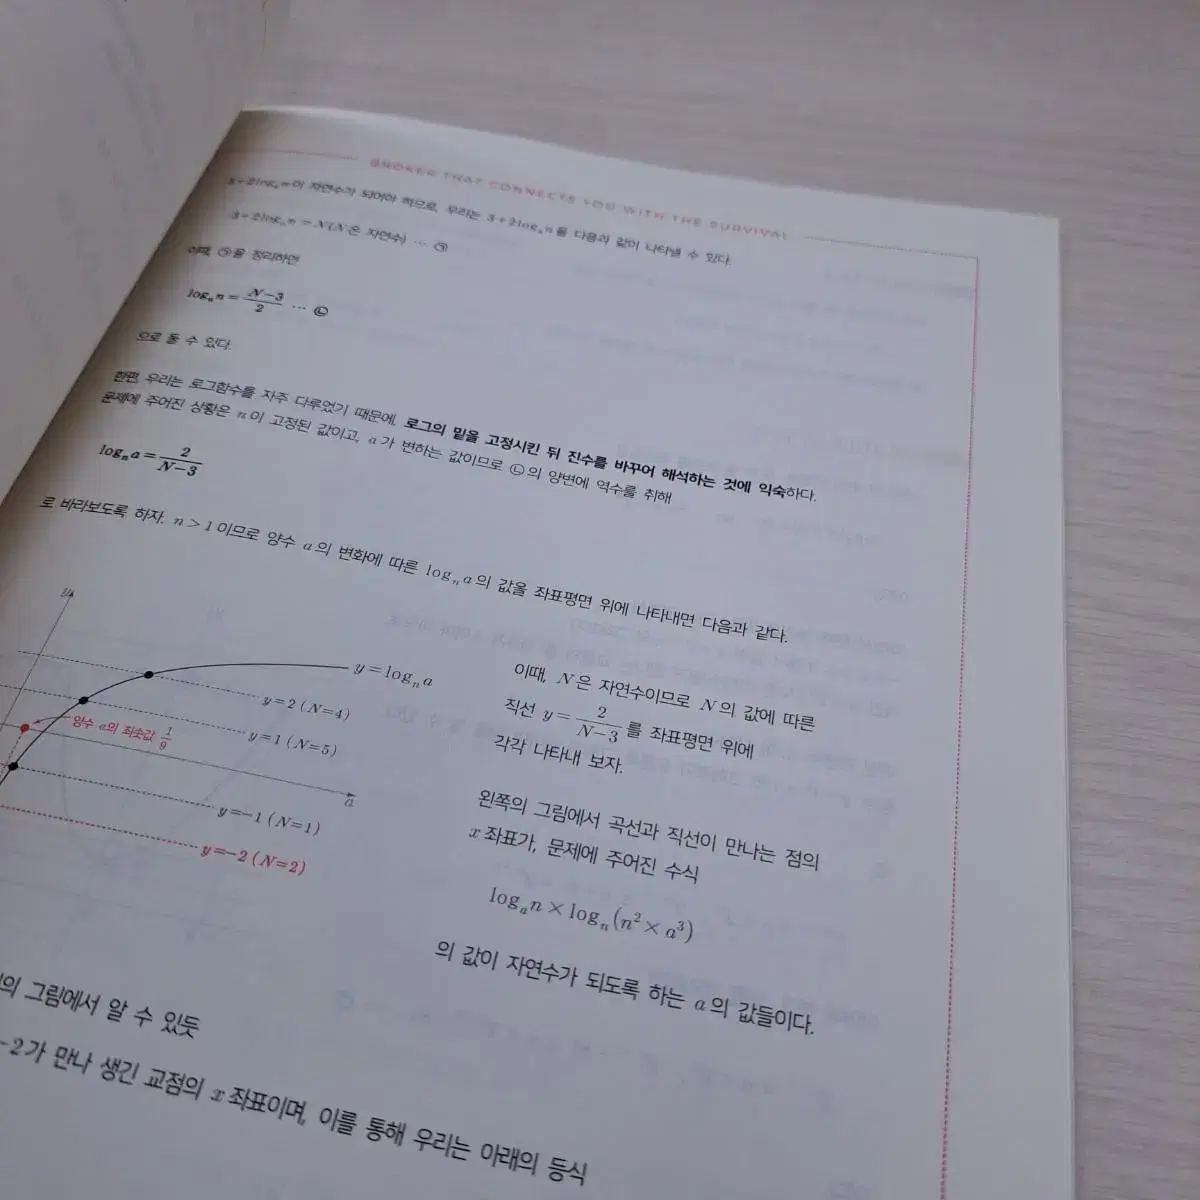 BROKER THAT CONNECTS YOU WITH THE SURVIVAL
3+2logₐn이 자연수가 되어야 하므로, 우리는 3+2logₐn를 다음과 같이 나타낼 수 있다.
3+2logₐn=N(N은 자연수) … ㉠
이때, ㉠을 정리하면
logₐn = (N-3)/2 … ㉡
으로 둘 수 있다.
한편, 우리는 로그함수를 자주 다루었기 때문에, 로그의 밑을 고정시킨 뒤 진수를 바꾸어 해석하는 것에 익숙하다.
문제에 주어진 상황은 n이 고정된 값이고, a가 변하는 값이므로 ㉡의 양변에 역수를 취해
logₙa = 2/(N-3)
로 바라보도록 하자. n>1이므로 양수 a의 변화에 따른 logₙa의 값을 좌표평면 위에 나타내면 다음과 같다.
y
y=logₙa
y=2 (N=4)
양수 a의 최솟값 1/9
y=1 (N=5)
a
y=-1 (N=1)
y=-2 (N=2)
이때, N은 자연수이므로 N의 값에 따른
직선 y = 2/(N-3)를 좌표평면 위에
각각 나타내 보자.
왼쪽의 그림에서 곡선과 직선이 만나는 점의
x좌표가, 문제에 주어진 수식
logₐn × logₙ(n²×a³)
의 값이 자연수가 되도록 하는 a의 값들이다.
의 그림에서 알 수 있듯
-2가 만나 생긴 교점의 x좌표이며, 이를 통해 우리는 아래의 등식